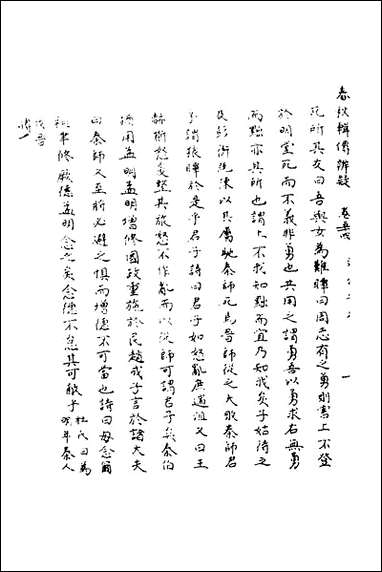 春秋輯傳辨疑
死所其友曰吾與女為難瞫曰周志有之勇則害上不登
於明堂死而不義非勇也共用之謂勇吾以勇求右無勇
而黜亦其所也謂上不我知黜而宜乃知我矣子姑待之
及彭衙既陳以其屬馳秦師死焉晉師從之大敗秦師君
子謂狼瞫於是乎君子詩曰君子如怒亂庶遄沮又曰王
赫斯怒爰整其旅怒不作亂而以從師可謂君子矣秦伯
猶用孟明孟明增修國政重施於民趙成子言於諸大夫
曰秦師又至將必避之懼而增德不可當也詩曰毋念爾
祖聿修厥德孟明念之矣念德不怠其可敵乎
杜氏曰為
明年秦人
伐晉
傳